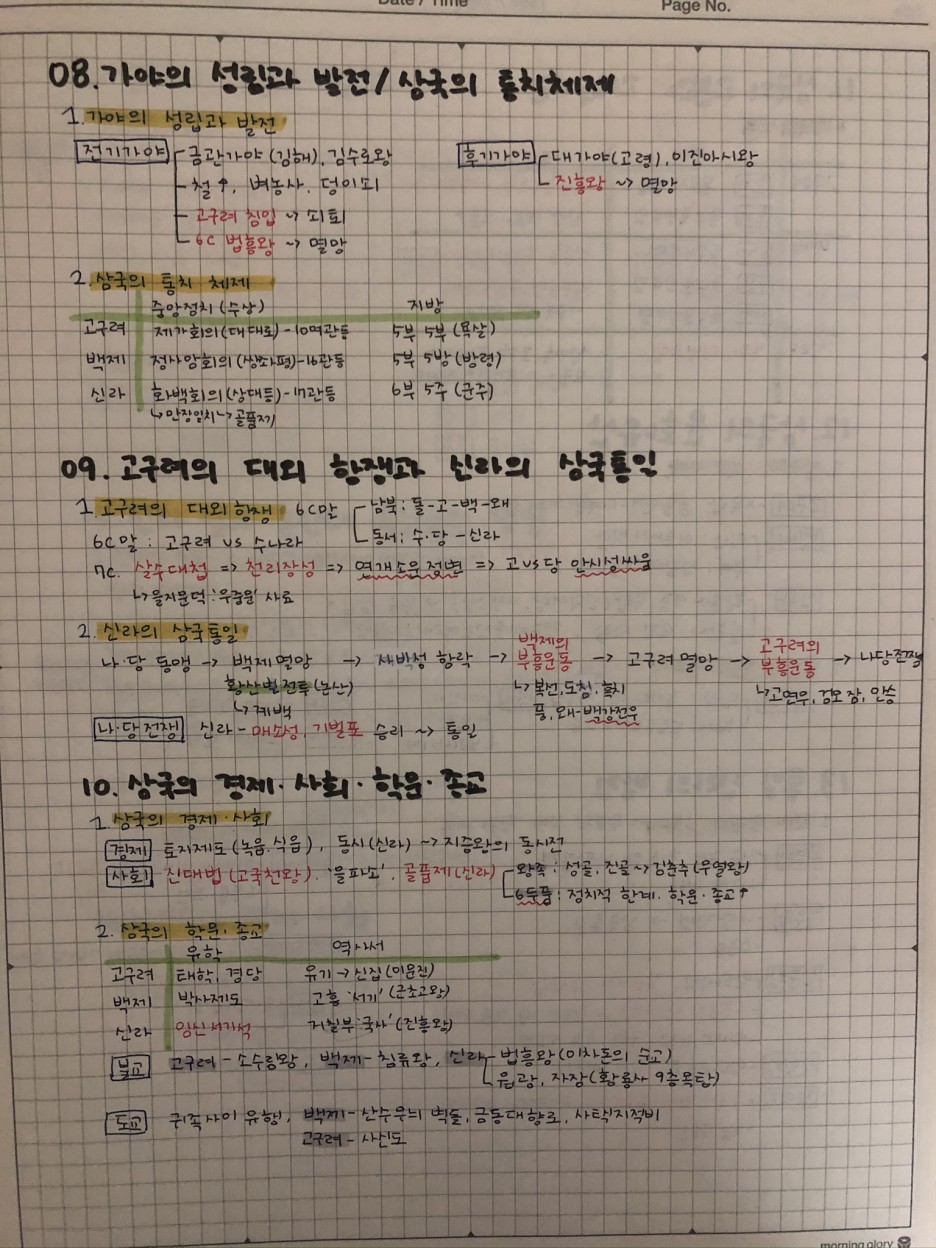 Date / Time
Page No.
08. 가야의 성립과 발전 / 삼국의 통치체제
1. 가야의 성립과 발전
전기가야 금관가야 (김해), 김수로왕
철↑, 벼농사, 덩이쇠
고구려 침입 ~> 쇠퇴
6C 법흥왕 ~> 멸망
후기가야 대가야(고령), 이진아시왕
진흥왕 ~> 멸망
2. 삼국의 통치 체제
중앙정치 (수상) 지방
고구려 제가회의 (대대로) - 10여관등 5부 5부 (욕살)
백제 정사암회의 (상좌평) - 16관등 5부 5방 (방령)
신라 화백회의 (상대등) - 17관등 6부 5주 (군주)
↳만장일치 ~> 골품제
09. 고구려의 대외 항쟁과 신라의 삼국통일
1. 고구려의 대외항쟁 6C말 남북 : 돌-고-백-왜
동서 : 수·당 - 신라
6C말 : 고구려 VS 수나라
7C. 살수대첩 => 천리장성 => 연개소문 정변 => 고 VS 당 안시성싸움
↳을지문덕 : '우중문' 사료
2. 신라의 삼국통일
나·당 동맹 -> 백제멸망 -> 사비성 함락 -> 백제의 부흥운동 -> 고구려 멸망 -> 고구려의 부흥운동 -> 나당전쟁
황산벌전투 (논산)
↳계백
↳복신, 도침, 흑치
풍, 왜-백강전투
↳고연무, 검모잠, 안승
나·당전쟁 신라 - 매소성, 기벌포 승리 ~> 통일
10. 삼국의 경제·사회·학문·종교
1. 삼국의 경제·사회
경제 토지제도 (녹읍, 식읍), 동시(신라) ~> 지증왕의 동시전
사회 진대법 (고국천왕). '을파소'. 골품제 (신라) 왕족 : 성골, 진골 ~> 김춘추 (무열왕)
6두품 : 정치적 한계. 학문·종교↑
2. 삼국의 학문·종교
유학 역사서
고구려 태학, 경당 유기 -> 신집 (이문진)
백제 박사제도 고흥 '서기' (근초고왕)
신라 임신서기석 거칠부 '국사' (진흥왕)
불교 고구려 - 소수림왕, 백제 - 침류왕, 신라 법흥왕 (이차돈의 순교)
원광, 자장 (황룡사 9층목탑)
도교 귀족사이 유행, 백제 - 산수무늬 벽돌, 금동대향로, 사택지적비
고구려 - 사신도
morning glory